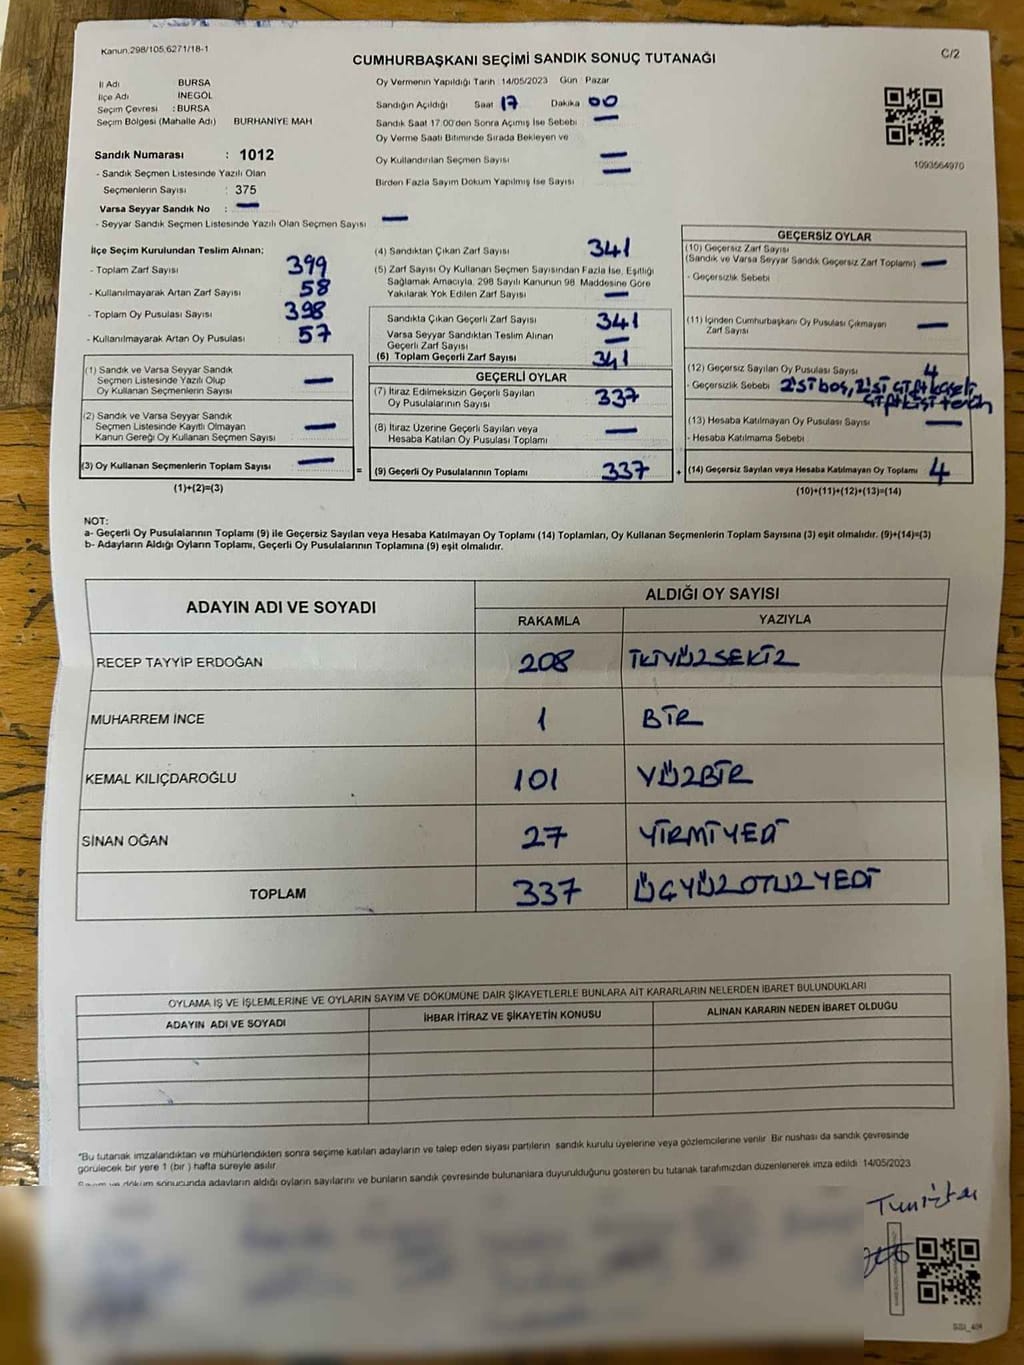 Kanun.298/105,6271/18-1
CUMHURBAŞKANI SEÇİMİ SANDIK SONUÇ TUTANAĞI
C/2
İl Adı BURSA
İlçe Adı İNEGÖL
Seçim Çevresi : BURSA
Seçim Bölgesi (Mahalle Adı) BURHANİYE MAH
Sandık Numarası : 1012
- Sandık Seçmen Listesinde Yazılı Olan
Seçmenlerin Sayısı : 375
Varsa Seyyar Sandık No : —
- Seyyar Sandık Seçmen Listesinde Yazılı Olan Seçmen Sayısı —
Oy Vermenin Yapıldığı Tarih : 14/05/2023 Gün : Pazar
Sandığın Açıldığı Saat 17 Dakika 00
Sandık Saat 17:00'den Sonra Açımış İse Sebebi —
Oy Verme Saati Bitiminde Sırada Bekleyen ve
Oy Kullandırılan Seçmen Sayısı —
Birden Fazla Sayım Döküm Yapılmış İse Sayısı —
1093564970
İlçe Seçim Kurulundan Teslim Alınan;
- Toplam Zarf Sayısı 399
- Kullanılmayarak Artan Zarf Sayısı 58
- Toplam Oy Pusulası Sayısı 398
- Kullanılmayarak Artan Oy Pusulası 57
(1) Sandık ve Varsa Seyyar Sandık
Seçmen Listesinde Yazılı Olup
Oy Kullanan Seçmenlerin Sayısı —
(2) Sandık ve Varsa Seyyar Sandık
Seçmen Listesinde Kayıtlı Olmayan
Kanun Gereği Oy Kullanan Seçmen Sayısı —
(3) Oy Kullanan Seçmenlerin Toplam Sayısı — =
(1)+(2)=(3)
(4) Sandıktan Çıkan Zarf Sayısı 341
(5) Zarf Sayısı Oy Kullanan Seçmen Sayısından Fazla İse, Eşitliği
Sağlamak Amacıyla, 298 Sayılı Kanunun 98. Maddesine Göre
Yakılarak Yok Edilen Zarf Sayısı —
Sandıkta Çıkan Geçerli Zarf Sayısı 341
Varsa Seyyar Sandıktan Teslim Alınan
Geçerli Zarf Sayısı —
(6) Toplam Geçerli Zarf Sayısı 341
GEÇERLİ OYLAR
(7) İtiraz Edilmeksizin Geçerli Sayılan
Oy Pusulalarının Sayısı 337
(8) İtiraz Üzerine Geçerli Sayılan veya
Hesaba Katılan Oy Pusulası Toplamı —
(9) Geçerli Oy Pusulalarının Toplamı 337 +
GEÇERSİZ OYLAR
(10) Geçersiz Zarf Sayısı
(Sandık ve Varsa Seyyar Sandık Geçersiz Zarf Toplamı) —
- Geçersizlik Sebebi
(11) İçinden Cumhurbaşkanı Oy Pusulası Çıkmayan
Zarf Sayısı —
(12) Geçersiz Sayılan Oy Pusulası Sayısı 4
- Geçersizlik Sebebi 2'si boş, 2'si çift kaşeli
çift kişi tercih
(13) Hesaba Katılmayan Oy Pusulası Sayısı —
- Hesaba Katılmama Sebebi
(14) Geçersiz Sayılan veya Hesaba Katılmayan Oy Toplamı 4
(10)+(11)+(12)+(13)=(14)
NOT:
a- Geçerli Oy Pusulalarının Toplamı (9) ile Geçersiz Sayılan veya Hesaba Katılmayan Oy Toplamı (14) Toplamları, Oy Kullanan Seçmenlerin Toplam Sayısına (3) eşit olmalıdır. (9)+(14)=(3)
b- Adayların Aldığı Oyların Toplamı, Geçerli Oy Pusulalarının Toplamına (9) eşit olmalıdır.
ADAYIN ADI VE SOYADI
ALDIĞI OY SAYISI
RAKAMLA YAZIYLA
RECEP TAYYİP ERDOĞAN 208 İKİYÜZSEKİZ
MUHARREM İNCE 1 BİR
KEMAL KILIÇDAROĞLU 101 YÜZBİR
SİNAN OĞAN 27 YİRMİYEDİ
TOPLAM 337 ÜÇYÜZOTUZYEDİ
OYLAMA İŞ VE İŞLEMLERİNE VE OYLARIN SAYIM VE DÖKÜMÜNE DAİR ŞİKAYETLERLE BUNLARA AİT KARARLARIN NELERDEN İBARET BULUNDUKLARI
ADAYIN ADI VE SOYADI İHBAR İTİRAZ VE ŞİKAYETİN KONUSU ALINAN KARARIN NEDEN İBARET OLDUĞU
"Bu tutanak imzalandıktan ve mühürlendikten sonra seçime katılan adayların ve talep eden siyasi partilerin sandık kurulu üyelerine veya gözlemcilerine verilir Bir nushası da sandık çevresinde
görülecek bir yere 1 (bir ) hafta süreyle asılır.
Sayım ve döküm sonucunda adayların aldığı oyların sayılarını ve bunların sandık çevresinde bulunanlara duyurulduğunu gösteren bu tutanak tarafımızdan düzenlenerek imza edildi 14/05/2023